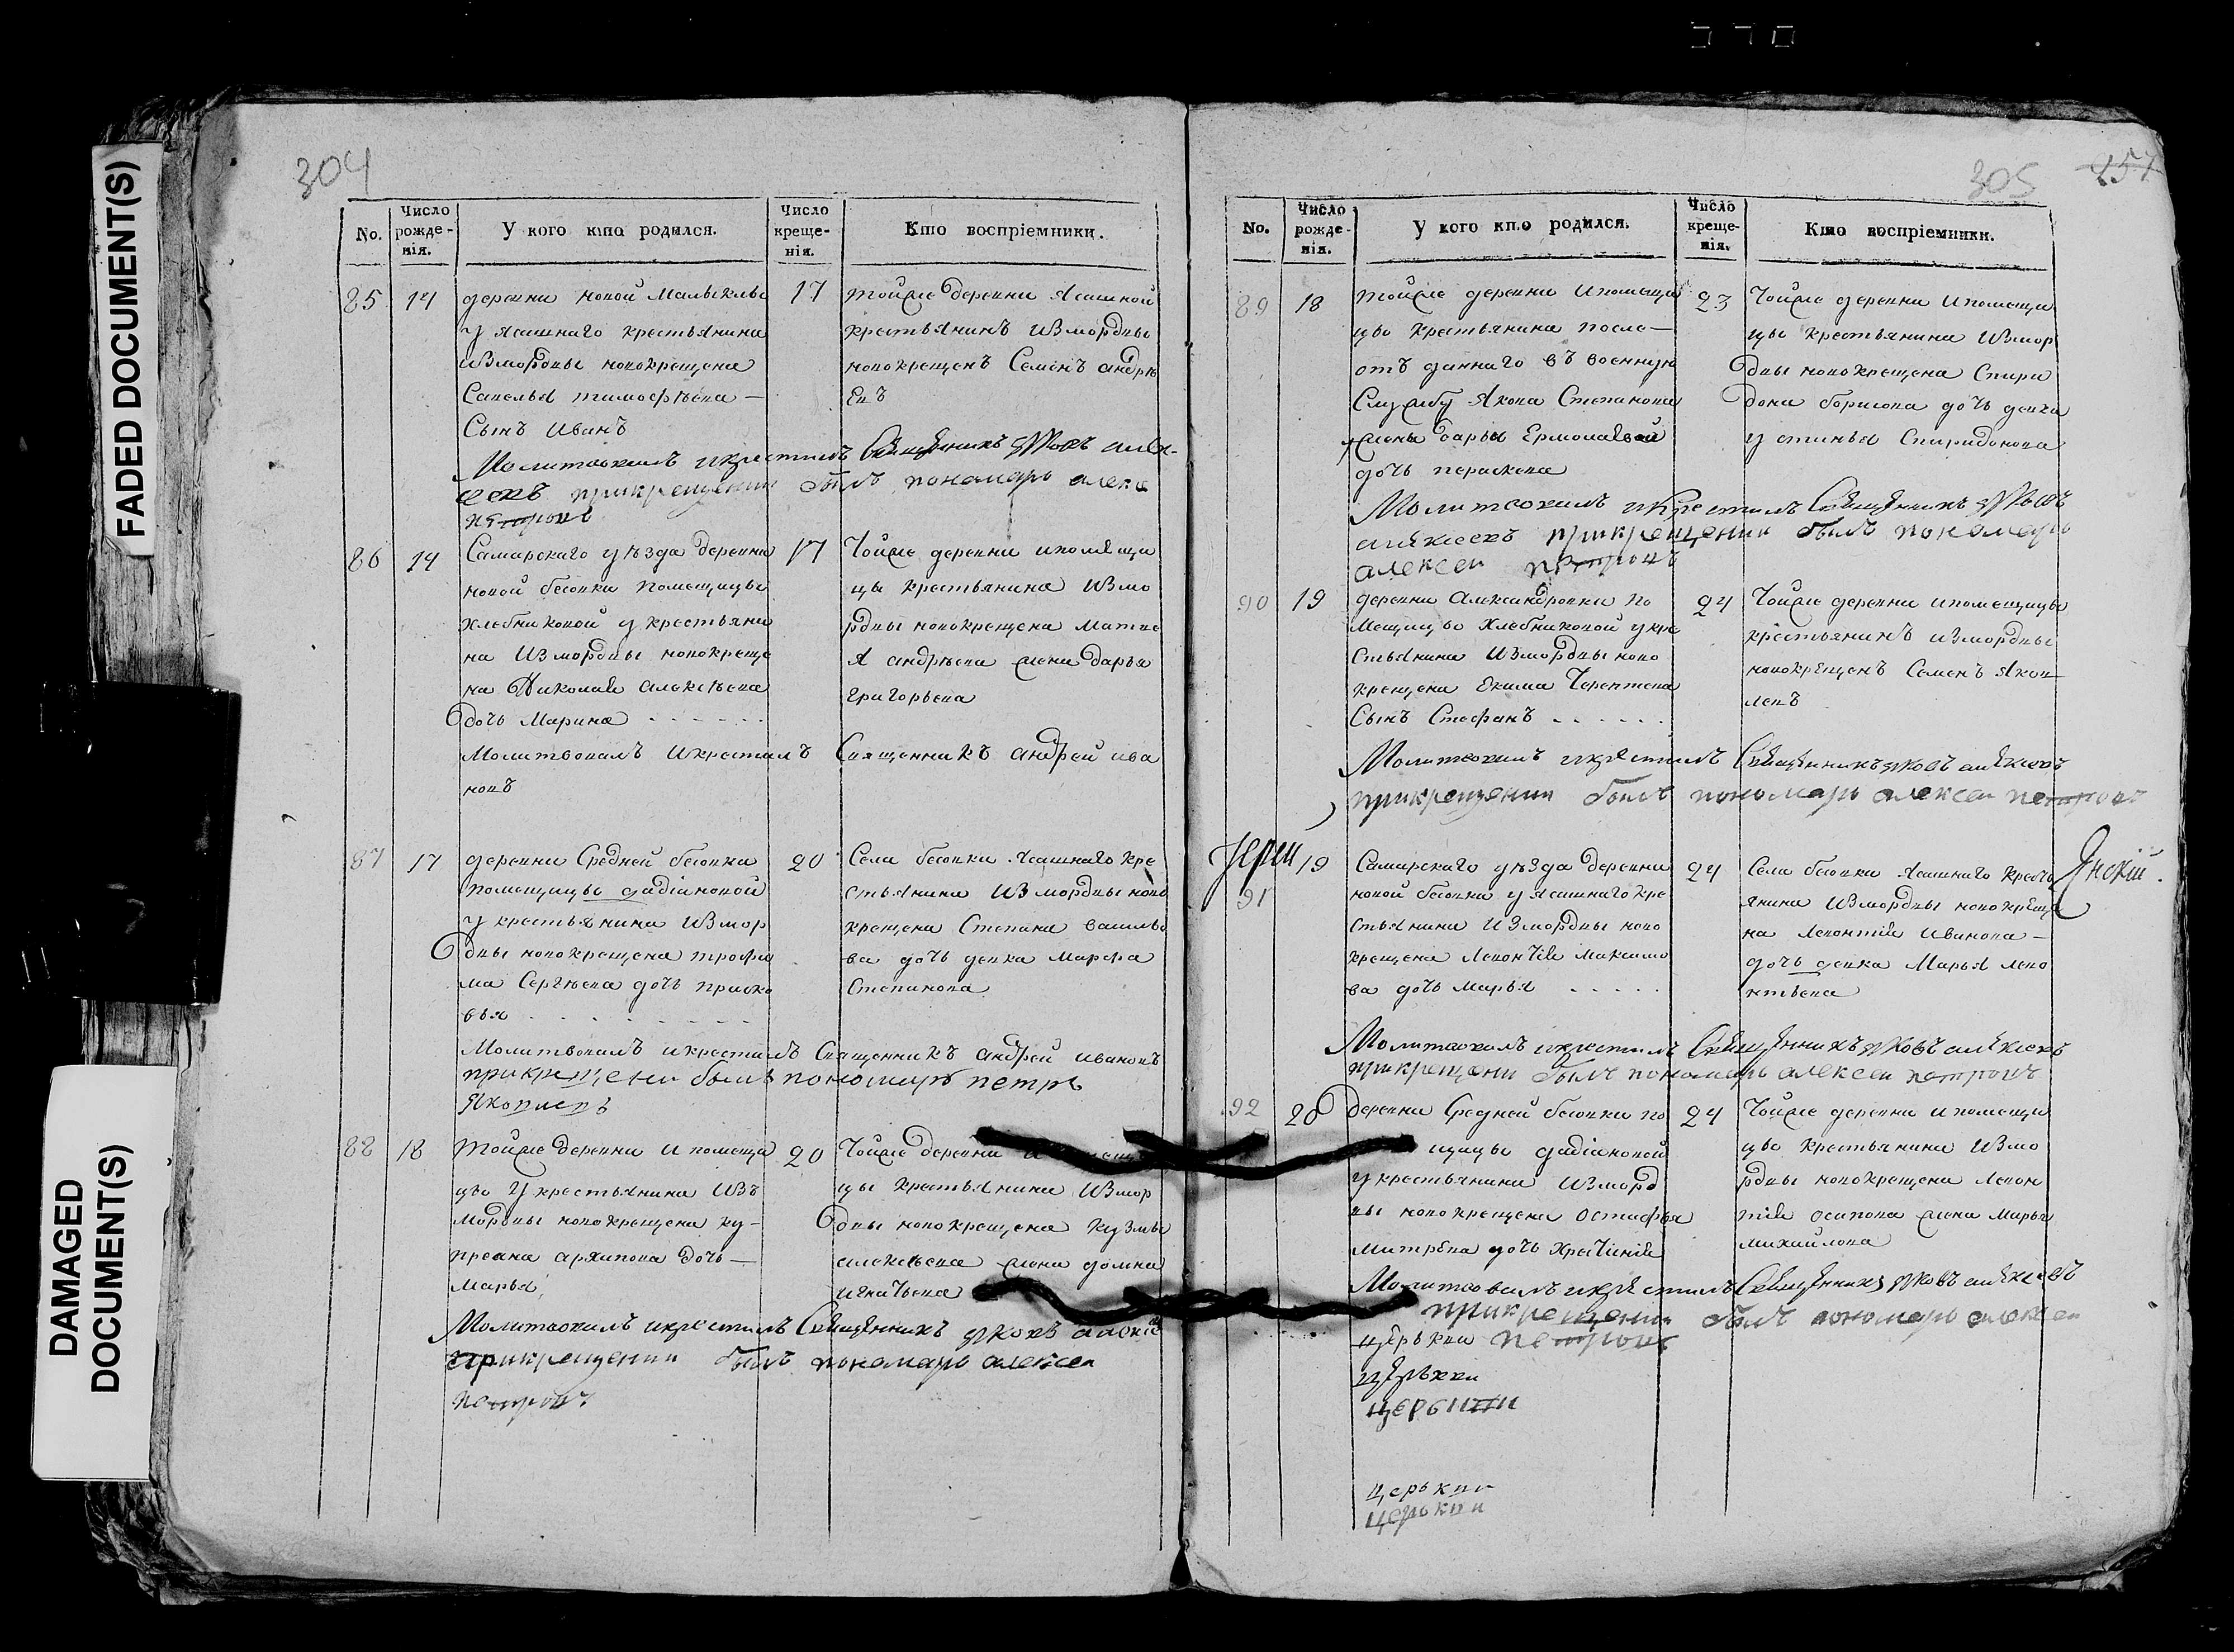 FADED DOCUMENT(S)
DAMAGED
DOCUMENT(S)
304
No.
Число рожденія.
У кого кто родился.
Число крещенія.
Кто воспріемники.
85 14
деревни новой Малыклы
у ясашнаго крестьянина
измордвы новокрещена
Савелья тимофѣева —
Сынъ Иванъ
17
тойже деревни Ясашной
крестьянинъ измордвы
новокрещенъ Семенъ андрѣ
евъ
Молитвовалъ икрестилъ Священникъ Яковъ алек-
сеевъ прикрещении былъ пономарь алексе
петровъ
86 14
Самарскаго уѣзда деревни
новой бесовки помещицы
хлебниковой у крестьяни
на измордвы новокреще
на Николая алексѣева
дочь Марина
17
Тойже деревни ипомещи
цы крестьянина измо
рдвы новокрещена Матве
я андрѣева жена дарья
григорьева
Молитвовалъ икрестилъ Священникъ андрей ива
новъ
87 17
деревни Средней бесовки
помещицы дадіановой
у крестьянина измор
двы новокрещена трофи
ма Сергѣева дочь праско
вья
20
Села бесовки Ясашнаго кре
стьянина измордвы ново
крещена Степана василье
ва дочь девка Марфа
Степанова
Молитвовалъ икрестилъ Священникъ андрей ивановъ
прикрещени былъ пономарь петръ
Яковлевъ
88 18
тойже деревни и помещи
цы У крестьянина изъ
мордвы новокрещена ку-
преана архипова дочь —
Марья
20
Тойже деревни
цы крестьянина измор
двы новокрещена кузмы
алексѣева жена домна
игнатьева
Молитвовалъ икрестилъ Священникъ яковъ алексѣе
прикрещении былъ пономарь алексеи
петровъ
305 457
No.
Число рожденія.
У кого кто родился.
Число крещенія.
Кто воспріемники.
89 18
тойже деревни ипомещи
цы крестьянина после —
отъ даннаго въ военную
Службу Якова Степанова
жены дарьи Ермолаевой
дочь параскева
23
Тойже деревни ипомещи
цы крестьянина измор
двы новокрещена Спири
дона борисова дочь девка
устинья Спиридонова
Молитвовалъ икрестилъ Священникъ Яковъ
алексеевъ прикрещении былъ пономарь
алексеи петровъ
90 19
деревни александровки по
мещицы хлебниковой укре
стьянина измордвы ново
крещена Екима Терентева
Сынъ Стефанъ
24
Тойже деревни ипомещицы
крестьянинъ измордвы
новокрещенъ Семенъ Яков
левъ
Молитвовалъ икрестилъ Священникъ яковъ алексеевъ
прикрещении былъ пономарь алексеи петровъ
Іереи
91 19
Самарскаго уѣзда деревни
новой бесовки у ясашнаго кре
стьянина измордвы ново
крещена Леонтия максимо
ва дочь марья
24
Села бесовки Ясашнаго крест
янина измордвы новокреще
на Леонтия иванова —
дочь девка Марья лево
нтьева
Молитвовалъ икрестилъ Священникъ яковъ алексеевъ
прикрещени былъ пономарь алексеи петровъ
92 20
деревни Средней бесовки по
щицы дадіановой
у крестьянина изморд
вы новокрещена остафья
митрева дочь христинія
24
Тойже деревни ипомещи
цы крестьянина измо
рдвы новокрещена левон
тия осипова жена марья
михайлова
Молитвовалъ икрестилъ Священникъ яковъ алексеевъ
прикрещении былъ пономарь алексеи
церькви петровъ
церькви
церькви
церькви